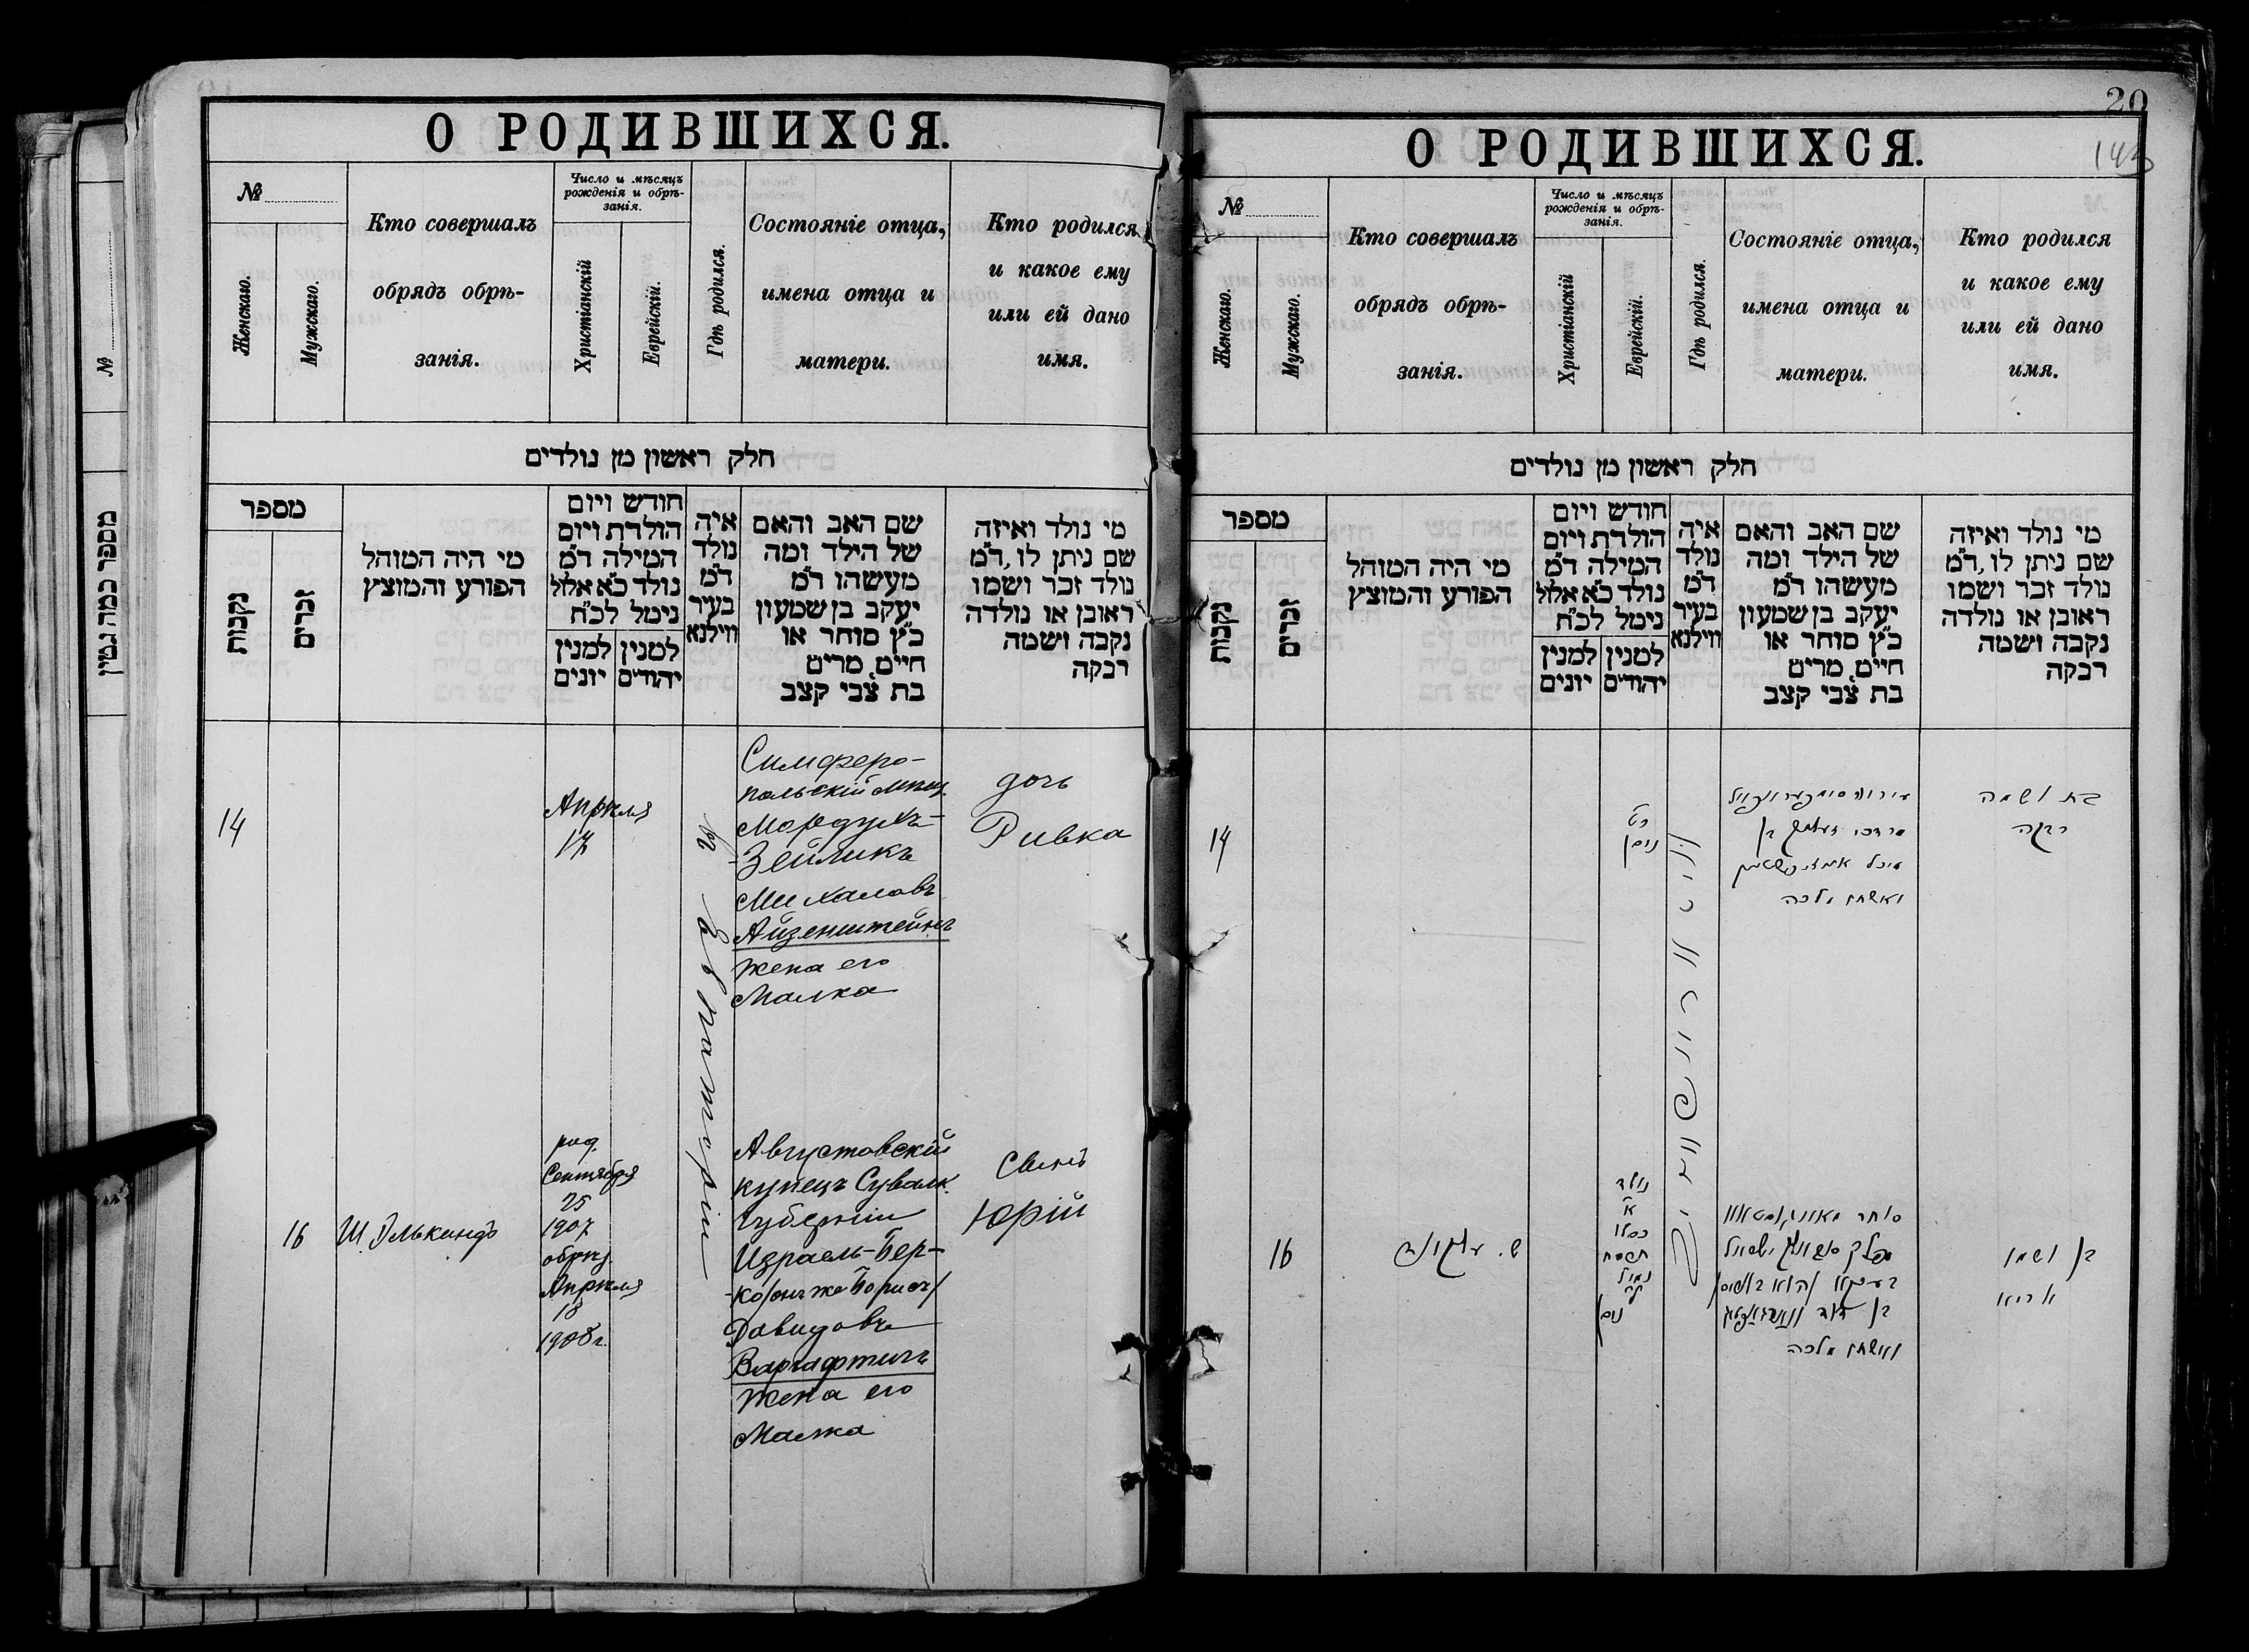 О РОДИВШИХСЯ.
№
Женскаго.
Мужскаго.
Кто совершалъ
обрядъ обрѣ-
занія.
Число и мѣсяцъ
рожденія и обрѣ-
занія.
Христіанскій
Еврейскій.
Гдѣ родился.
Состояніе отца,
имена отца и
матери.
Кто родился
и какое ему
или ей дано
имя.
חלק ראשון מן נולדים
מספר
נקבות
זכרים
מי היה המוהל
הפורע והמוצץ
חודש ויום
הולדת ויום
המילה ד״מ
נולד כ״א אלול
נימל לכ״ח
למנין
יונים
למנין
יהודים
איה
נולד
ד״מ
בעיר
ווילנא
שם האב והאם
של הילד ומה
מעשהו ד״מ
יעקב בן שמעון
כ״ץ סוחר או
חייט, מרים
בת צבי קצב
מי נולד ואיזה
שם ניתן לו, ד״מ
נולד זכר ושמו
ראובן או נולדה
נקבה ושמה
רבקה
14
Апрѣля
17
въ Евпаторіи
Симферо-
польскій мѣщ.
Мордухъ-
-Зейликъ
Михелевъ
Айзенштейнъ
жена его
Малка
дочь
Ривка
16
Ш. Элькиндъ
род.
Сентября
25
1907
обрѣз.
Апрѣля
18
1908 г.
Августовскій
купецъ Сувалк.
Губерніи
Израель-Бер-
-ко/онъ же Борисъ/
Давидовъ
Варгафтигъ
жена его
Малка
Сынъ
Юрій
№
מספר כמה נטין
20
О РОДИВШИХСЯ.
№
Женскаго.
Мужскаго.
Кто совершалъ
обрядъ обрѣ-
занія.
Число и мѣсяцъ
рожденія и обрѣ-
занія.
Христіанскій
Еврейскій.
Гдѣ родился.
Состояніе отца,
имена отца и
матери.
Кто родился
и какое ему
или ей дано
имя.
חלק ראשון מן נולדים
מספר
נקבות
זכרים
מי היה המוהל
הפורע והמוצץ
חודש ויום
הולדת ויום
המילה ד״מ
נולד כ״א אלול
נימל לכ״ח
למנין
יונים
למנין
יהודים
איה
נולד
ד״מ
בעיר
ווילנא
שם האב והאם
של הילד ומה
מעשהו ד״מ
יעקב בן שמעון
כ״ץ סוחר או
חייט, מרים
בת צבי קצב
מי נולד ואיזה
שם ניתן לו, ד״מ
נולד זכר ושמו
ראובן או נולדה
נקבה ושמה
רבקה
14
ניסן
מרדכי זעליק בן
מיכל אייזענשטיין
ואשתו מלכה
בת ושמה
רבקה
16
ש. עלקינד
נולד
נימול
ניסן
סוחר
בן דוד ווארהאפטיג
ואשתו מלכה
בן ושמו
אריא